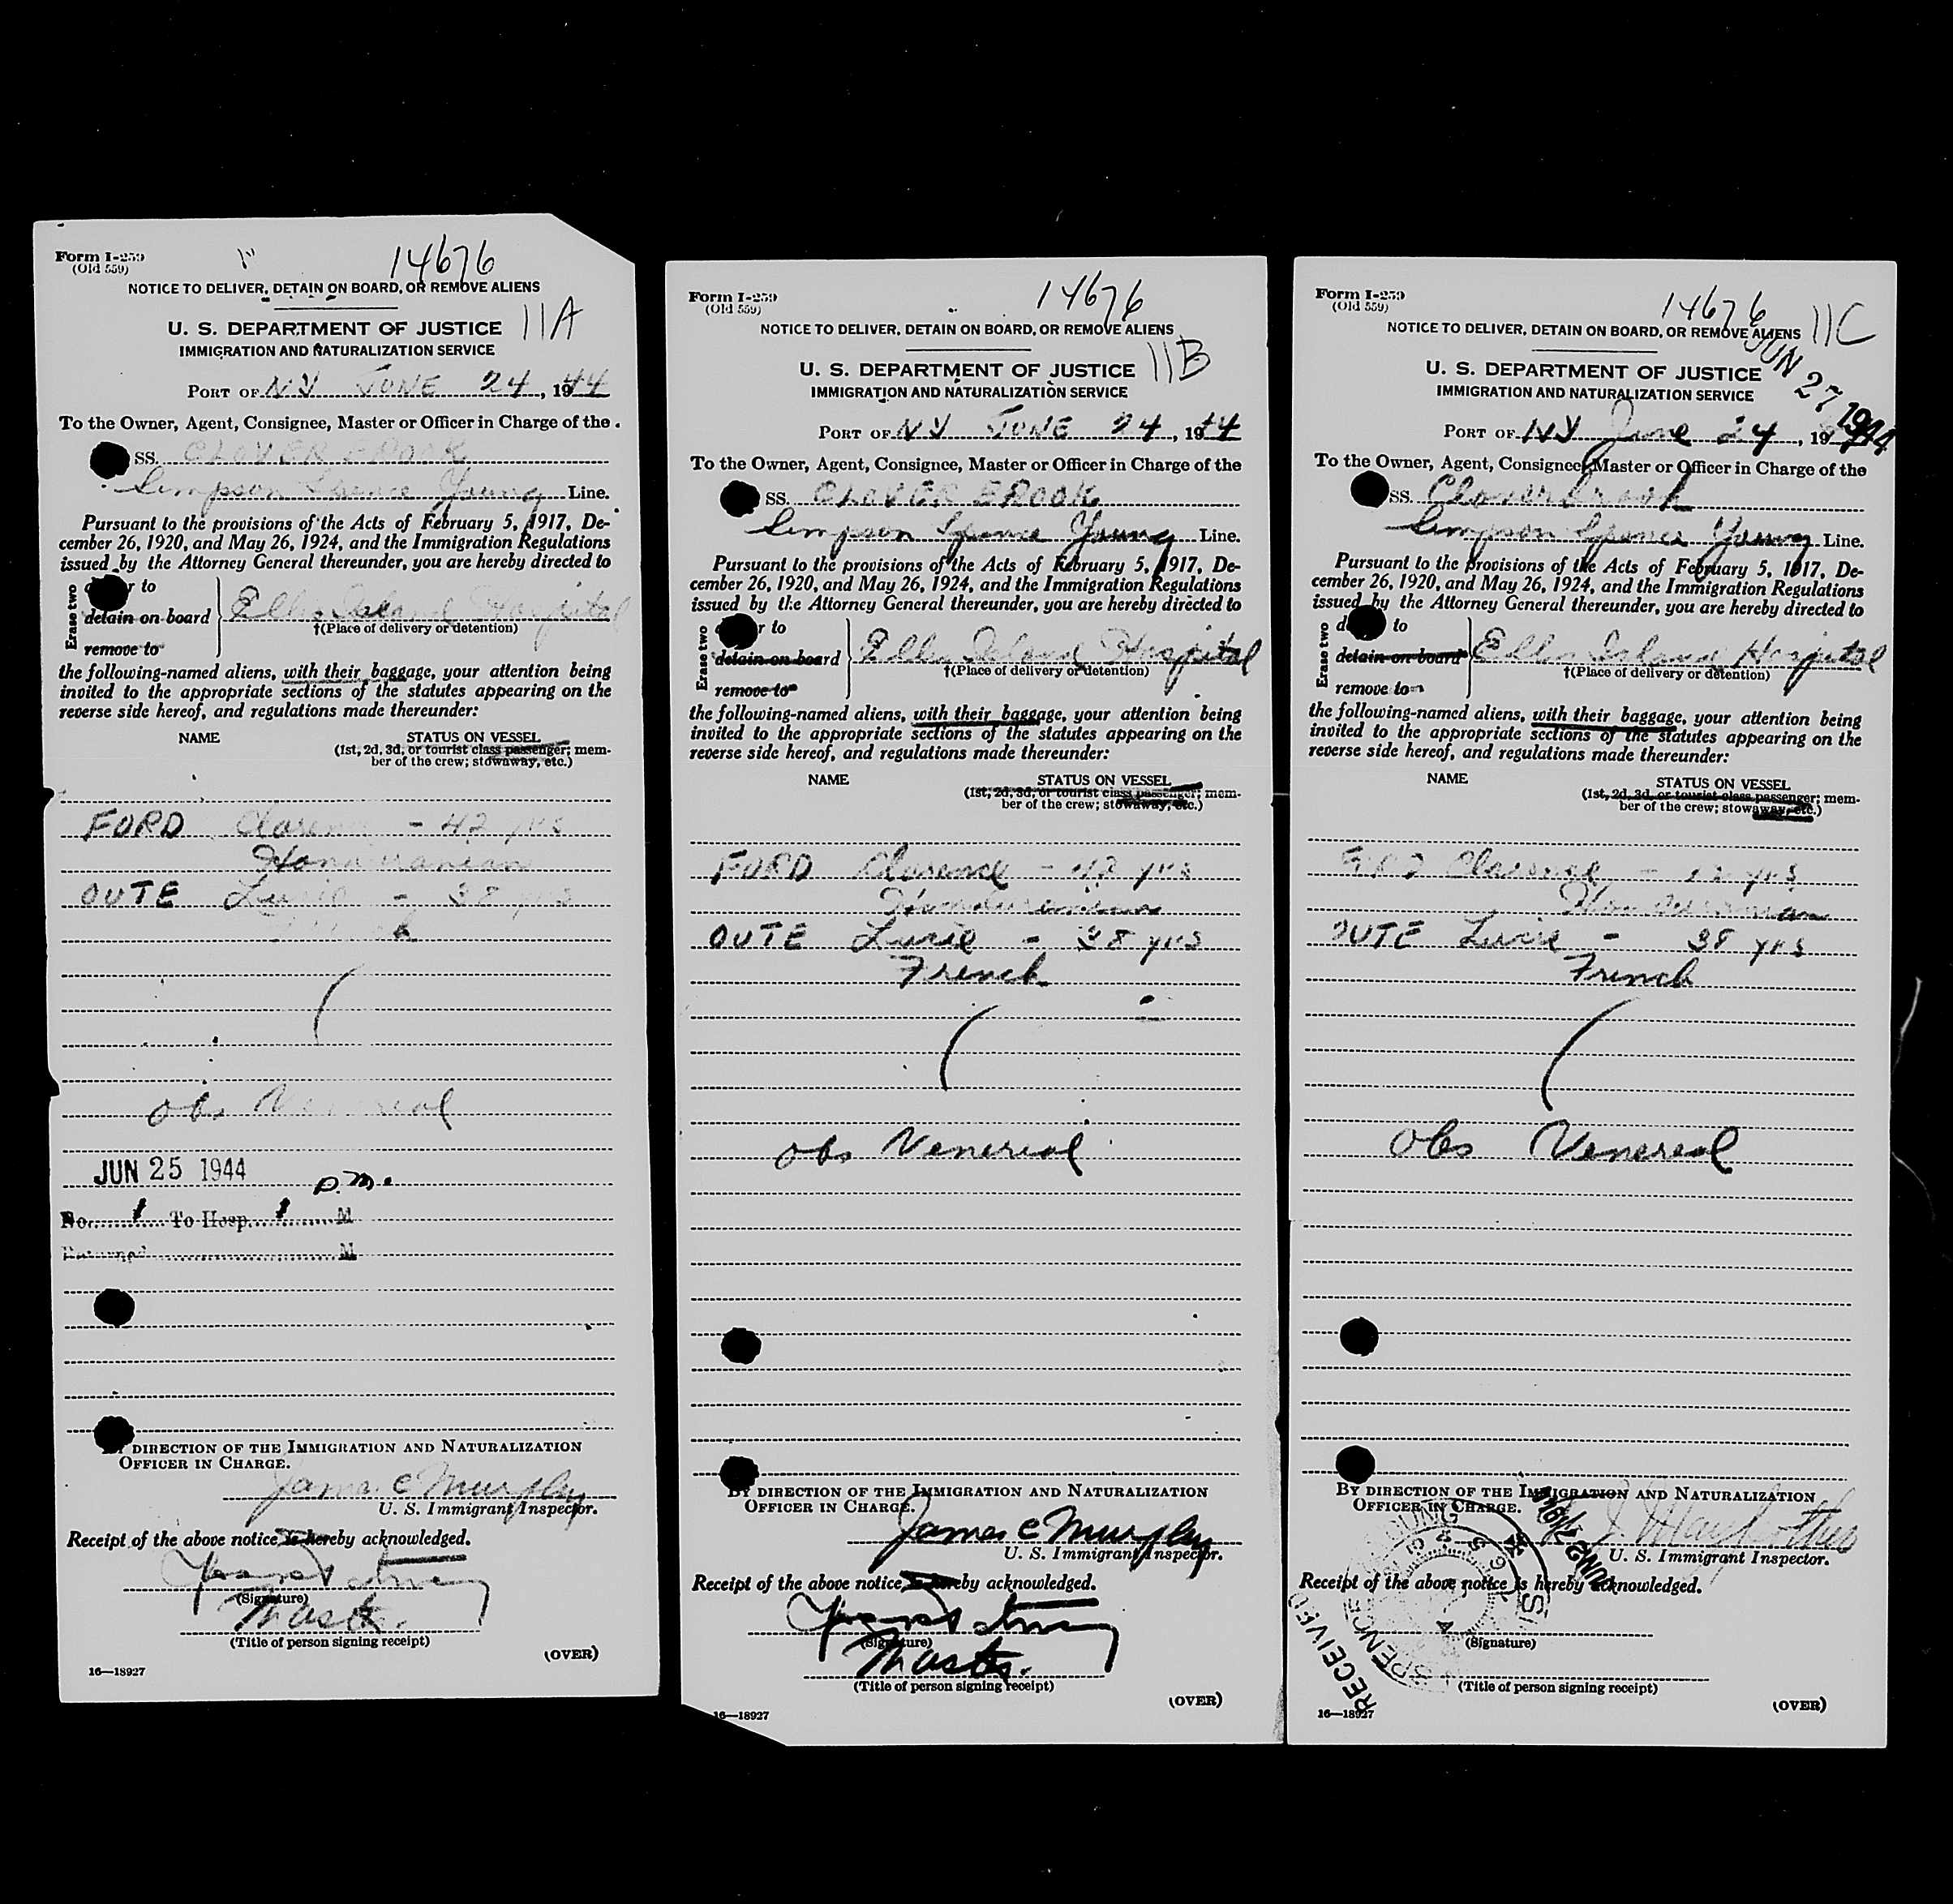 Form I-259
(Old 559)
14676
NOTICE TO DELIVER, DETAIN ON BOARD, OR REMOVE ALIENS
11A
U. S. DEPARTMENT OF JUSTICE
IMMIGRATION AND NATURALIZATION SERVICE
PORT OF NY JUNE 24, 1944
To the Owner, Agent, Consignee, Master or Officer in Charge of the
SS. CLOVER BROOK
Simpson Spence Young Line.
Pursuant to the provisions of the Acts of February 5, 1917, De-
cember 26, 1920, and May 26, 1924, and the Immigration Regulations
issued by the Attorney General thereunder, you are hereby directed to
Erase two
r to
detain on board
remove to
Ellis Island Hospital
†(Place of delivery or detention)
the following-named aliens, with their baggage, your attention being
invited to the appropriate sections of the statutes appearing on the
reverse side hereof, and regulations made thereunder:
NAME STATUS ON VESSEL
(1st, 2d, 3d, or tourist class passenger; mem-
ber of the crew; stowaway, etc.)
FORD Clarence - 42 yrs
Honduranian
OUTE Lucie - 38 yrs
obs Venereal
JUN 25 1944 P.M.
No. 1 To Hosp. 1 M
M
BY DIRECTION OF THE IMMIGRATION AND NATURALIZATION
OFFICER IN CHARGE.
James C Murphy
U. S. Immigrant Inspector.
Receipt of the above notice is hereby acknowledged.
(Signature)
Master.
(Title of person signing receipt)
(OVER)
16—18927
Form I-259
(Old 559)
14676
NOTICE TO DELIVER, DETAIN ON BOARD, OR REMOVE ALIENS
11B
U. S. DEPARTMENT OF JUSTICE
IMMIGRATION AND NATURALIZATION SERVICE
PORT OF NY JUNE 24, 1944
To the Owner, Agent, Consignee, Master or Officer in Charge of the
SS. CLOVER BROOK
Simpson Spence Young Line.
Pursuant to the provisions of the Acts of February 5, 1917, De-
cember 26, 1920, and May 26, 1924, and the Immigration Regulations
issued by the Attorney General thereunder, you are hereby directed to
Erase two
r to
detain on board
remove to
Ellis Island Hospital
†(Place of delivery or detention)
the following-named aliens, with their baggage, your attention being
invited to the appropriate sections of the statutes appearing on the
reverse side hereof, and regulations made thereunder:
NAME STATUS ON VESSEL
(1st, 2d, 3d, or tourist class passenger; mem-
ber of the crew; stowaway, etc.)
FORD Clarence - 42 yrs
Honduranian
OUTE Lucie - 38 yrs
French
obs Venereal
BY DIRECTION OF THE IMMIGRATION AND NATURALIZATION
OFFICER IN CHARGE.
James C Murphy
U. S. Immigrant Inspector.
Receipt of the above notice is hereby acknowledged.
(Signature)
Master.
(Title of person signing receipt)
(OVER)
16—18927
Form I-259
(Old 559)
14676
NOTICE TO DELIVER, DETAIN ON BOARD, OR REMOVE ALIENS
11C
JUN 27 1944
U. S. DEPARTMENT OF JUSTICE
IMMIGRATION AND NATURALIZATION SERVICE
PORT OF NY June 24, 19
To the Owner, Agent, Consignee, Master or Officer in Charge of the
SS. Cloverbrook
Simpson Spence Young Line.
Pursuant to the provisions of the Acts of February 5, 1917, De-
cember 26, 1920, and May 26, 1924, and the Immigration Regulations
issued by the Attorney General thereunder, you are hereby directed to
Erase two
to
detain on board
remove to
Ellis Island Hospital
†(Place of delivery or detention)
the following-named aliens, with their baggage, your attention being
invited to the appropriate sections of the statutes appearing on the
reverse side hereof, and regulations made thereunder:
NAME STATUS ON VESSEL
(1st, 2d, 3d, or tourist class passenger; mem-
ber of the crew; stowaway, etc.)
FORD Clarence - 42 yrs
Honduranian
OUTE Lucie - 38 yrs
French
obs Venereal
BY DIRECTION OF THE IMMIGRATION AND NATURALIZATION
OFFICER IN CHARGE.
U. S. Immigrant Inspector.
Receipt of the above notice is hereby acknowledged.
RECEIVED
SPENCE
YOUNG
(Signature)
(Title of person signing receipt)
(OVER)
16—18927